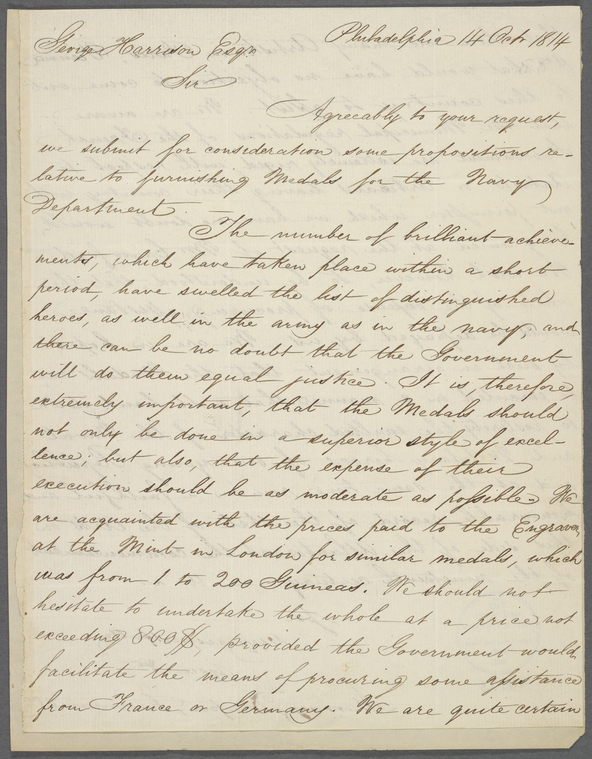 Philadelphia 14 Octr 1814
George Harrison Esqr.
Sir
Agreeably to your request,
we submit for consideration some propositions re-
lative to furnishing Medals for the Navy
Department.
The number of brilliant achieve-
ments, which have taken place within a short
period, have swelled the list of distinguished
heroes, as well in the army as in the navy, and
there can be no doubt that the Government
will do them equal justice. It is, therefore,
extremely important, that the Medals should
not only be done in a superior style of excel-
lence; but also, that the expense of their
execution should be as moderate as possible. We
are acquainted with the prices paid to the Engraver
at the Mint in London for similar medals, which
was from 1 to 200 Guineas. We should not
hesitate to undertake the whole at a price not
exceeding 800$, provided the Government would
facilitate the means of procuring some assistance
from France or Germany. We are quite certain